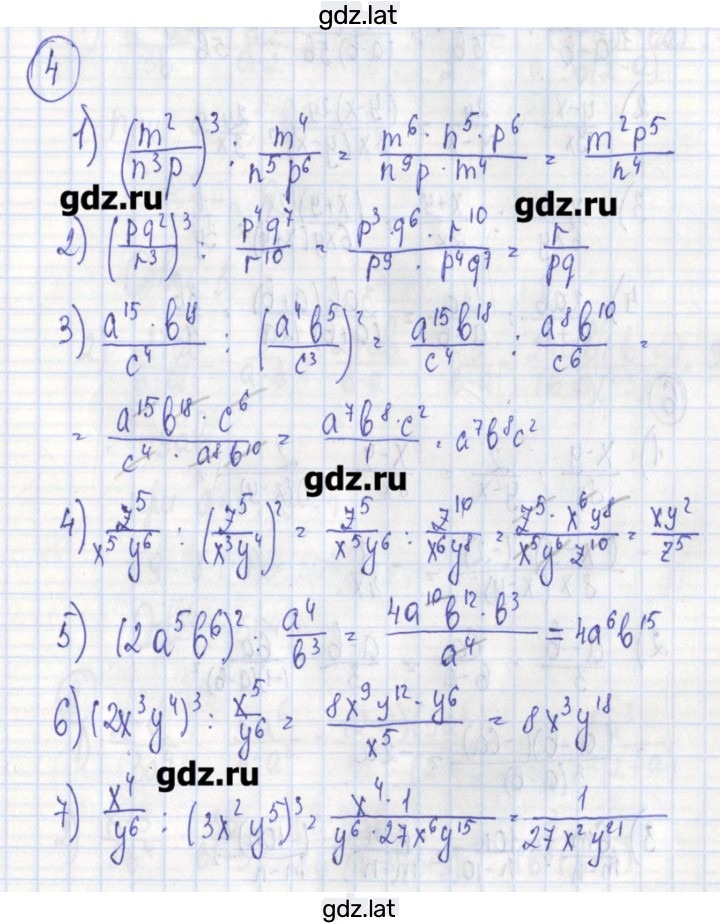 gdz.lat
4
1) (m²/n³p)³ : m⁴/n⁵p⁶ = m⁶ · n⁵ · p⁶/n⁹p · m⁴ = m²p⁵/n⁴
gdz.ru gdz.ru
2) (pq²/r³)³ : p⁴q⁷/r¹⁰ = p³ · q⁶ · r¹⁰/p⁹ · p⁴q⁷ = r/pq
3) a¹⁵ · b¹⁸/c⁴ : (a⁴b⁵/c³)² = a¹⁵b¹⁸/c⁴ : a⁸b¹⁰/c⁶ =
= a¹⁵b¹⁸ · c⁶/c⁴ · a⁸b¹⁰ = a⁷b⁸ · c²/1 = a⁷b⁸c²
gdz.ru
4) z⁵/x⁵y⁶ : (z⁵/x³y⁴)² = z⁵/x⁵y⁶ : z¹⁰/x⁶y⁸ = z⁵ · x⁶y⁸/x⁵y⁶ z¹⁰ = xy²/z⁵
5) (2a⁵b⁶)² : a⁴/b³ = 4a¹⁰b¹² · b³/a⁴ = 4a⁶b¹⁵
6) (2x³y⁴)³ : x⁵/y⁶ = 8x⁹y¹² · y⁶/x⁵ = 8x³y¹⁸
gdz.ru
7) x⁴/y⁶ : (3x²y⁵)³ = x⁴ · 1/y⁶ · 27x⁶y¹⁵ = 1/27x²y²¹
gdz.lat